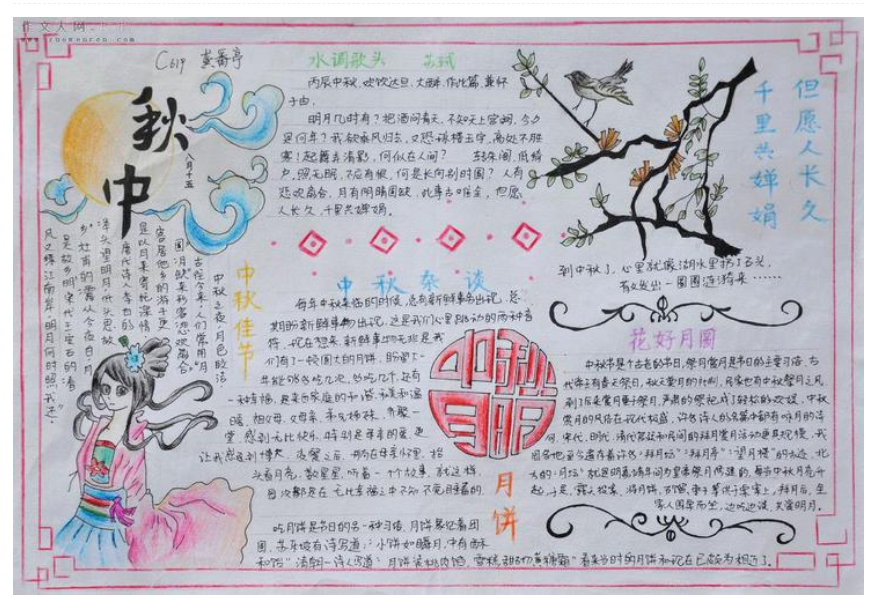 作文人网
www.zuowenren.com
C619
水调歌头 苏轼
丙辰中秋,欢饮达旦,大醉,作此篇,兼怀
子由。
明月几时有?把酒问青天,不知天上宫阙,今夕
是何年?我欲乘风归去,又恐琼楼玉宇,高处不胜
寒!起舞弄清影,何似在人间?转朱阁,低绮
户,照无眠,不应有恨,何是长向别时圆?人有
悲欢离合,月有阴晴圆缺,此事古难全,但愿
人长久,千里共婵娟。
但愿人长久
千里共婵娟
中秋
八月十五
中秋佳节
中秋之夜,月色皎洁
古往今来,人们常用"月
圆月缺"来形容"悲欢离合"
客居他乡的游子更
是以月来寄托深情
唐代诗人李白的
举头望明月,低头思故
乡"杜甫的"露从今夜白,月
是故乡明"宋代王安石的"春
风又绿江南岸,明月何时照我还"
中秋杂谈
每年中秋来临的时候,总有新鲜事物出现,总
期盼新鲜事物出现,这是我们心里
们有了一顿圆大的月饼,盼望了一
一种情感
暖,祖父母,父母亲,兄弟姊妹,齐聚一
堂,感到无比快乐
头看月亮,数星星,听着一个故事,就这样,
中秋
月明
月饼
吃月饼是节日的另一种习俗,月饼象征着团
圆,苏东坡有诗写道:"小饼如嚼月,中有酥
和饴"清朝一诗人写道:"月饼饱装桃肉馅,雪糕甜砌蔗糖霜"看来当时的月饼和现在已颇为相近了。
到中秋了,心里就像湖水里扔了石头,
有如发出一圈圈涟漪来……
花好月圆
中秋节是个古老的节日,祭月赏月是节日的主要习俗。古
代帝王有春天祭日,秋天祭月的社制,民家也有中秋祭月之风,
到了后来赏月重于祭月,严肃的祭祀成了轻松的欢娱,中秋
赏月的风俗在
何,宋代、明代、清代宫廷和民间的拜月赏月活动更具规模,我
国各地至今遗存着许多"拜月坛""拜月亭""望月楼"的古迹,北
京的"月坛"就是明嘉靖年间为皇家祭月修造的,每当中秋月亮升
起,于是,露天设案,将月饼,石榴,枣子等供于桌案上,拜月后,全
家人围桌而坐,边吃边谈,共赏明月。